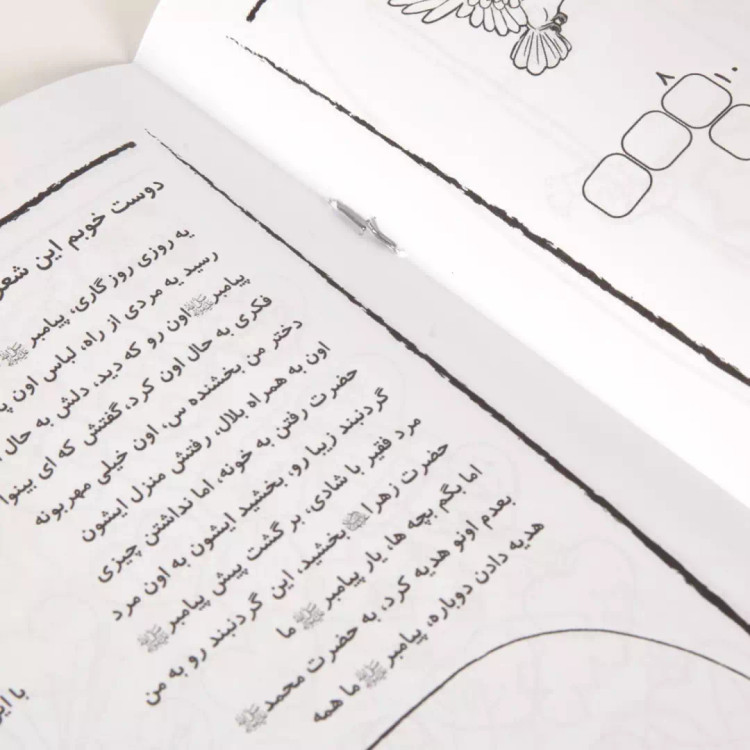 دوست خوبم این شعر
یه روزی روزگاری، پیامبر ﷺ
رسید به مردی از راه، لباس اون
پیامبر ﷺ اون رو که دید، دلش به حال
فکری به حال اون کرد، گفتش که ای بینوا
دختر من بخشنده س، اون خیلی مهربونه
اون به همراه بلال، رفتش منزل ایشون
حضرت رفتن به خونه، اما نداشتن چیزی
گردنبند زیبا رو، بخشید ایشون به اون مرد
مرد فقیر با شادی، بر گشت پیش پیامبر ﷺ
حضرت زهرا بخشید، این گردنبند رو به من
اما بگم بچه ها، یار پیامبر ﷺ ما
بعدم اونو هدیه کرد، به حضرت محمد ﷺ
هدیه دادن دوباره، پیامبر ﷺ ما همه
با
۸
۱۰